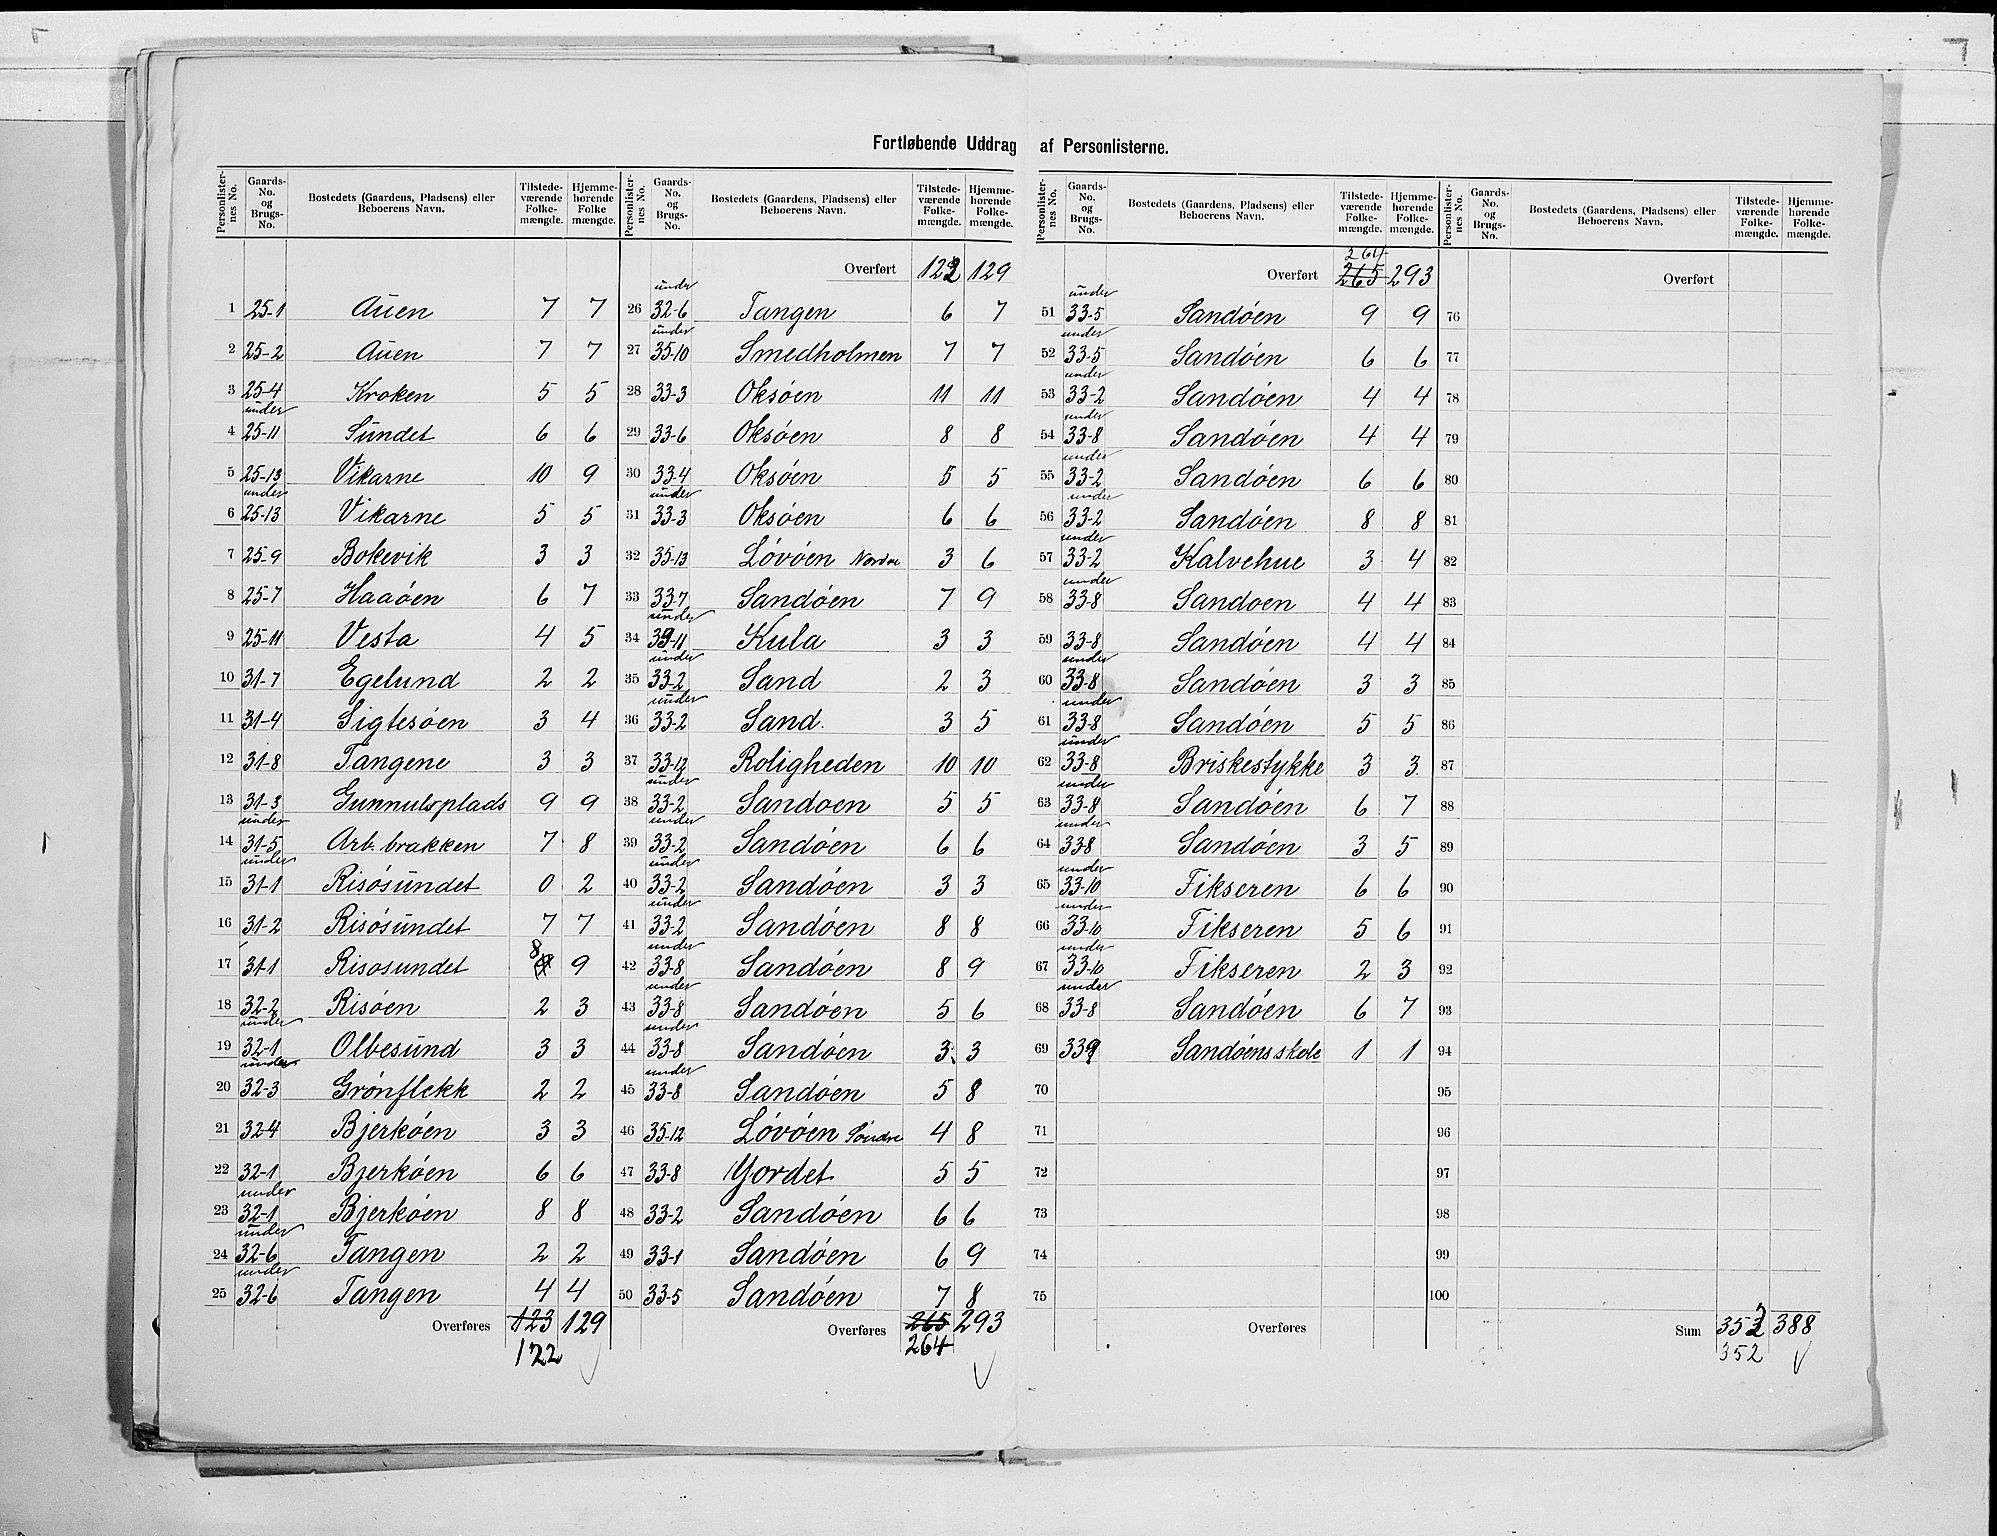 Fortløbende Uddrag af Personlisterne.
Personlisternes No. Gaards-No. og Brugs-No. Bostedets (Gaardens, Pladsens) eller Beboerens Navn. Tilstedeværende Folkemængde. Hjemmehørende Folkemængde.
1 25-1 Auen 7 7
2 25-2 Auen 7 7
3 25-4 Kroken 5 5
4 under 25-11 Sundet 6 6
5 25-13 Vikarne 10 9
6 under 25-13 Vikarne 5 5
7 25-9 Bokevik 3 3
8 25-7 Haaøen 6 7
9 25-11 Vesta 4 5
10 31-7 Egelund 2 2
11 31-4 Sigtesøen 3 4
12 31-8 Tangene 3 3
13 31-3 Gunnulsplads 9 9
14 under 31-5 Arb. brakken 7 8
15 under 31-1 Risøsundet 0 2
16 31-2 Risøsundet 7 7
17 31-1 Risosundet 8 9
18 32-2 Risøen 2 3
19 under 32-1 Olbesund 3 3
20 under 32-3 Grønflekk 2 2
21 32-4 Bjerkøen 3 3
22 32-1 Bjerkøen 6 6
23 under 32-1 Bjerkøen 8 8
24 under 32-6 Tangen 2 2
25 under 32-6 Tangen 4 4
Overføres 123 129
122
Personlisternes No. Gaards-No. og Brugs-No. Bostedets (Gaardens, Pladsens) eller Beboerens Navn. Tilstedeværende Folkemængde. Hjemmehørende Folkemængde.
Overført 122 129
26 under 32-6 Tangen 6 7
27 under 35-10 Smedholmen 7 7
28 33-3 Oksøen 11 11
29 33-6 Oksøen 8 8
30 33-4 Oksøen 5 5
31 under 33-3 Oksøen 6 6
32 35-13 Løvøen Nordre 3 6
33 33-7 Sandøen 7 9
34 under 33-11 Kula 3 3
35 under 33-2 Sand 2 3
36 under 33-2 Sand. 3 5
37 33-12 Roligheden 10 10
38 under 33-2 Sandoen 5 5
39 under 33-2 Sandøen 6 6
40 under 33-2 Sandøen 3 3
41 under 33-2 Sandøen 8 8
42 under 33-8 Sandøen 8 9
43 under 33-8 Sandøen 5 6
44 under 33-8 Sandøen 3 3
45 under 33-8 Sandøen 5 8
46 35-12 Løvøen Søndre 4 8
47 33-8 Yordet 5 5
48 33-2 Sandøen 6 6
49 33-1 Sandøen 6 9
50 33-5 Sandøen 7 8
Overføres 265 293
264
Personlisternes No. Gaards-No. og Brugs-No. Bostedets (Gaardens, Pladsens) eller Beboerens Navn. Tilstedeværende Folkemængde. Hjemmehørende Folkemængde.
264
Overført 265 293
51 under 33-5 Sandøen 9 9
52 under 33-5 Sandøen 6 6
53 under 33-2 Sandøen 4 4
54 under 33-8 Sandøen 4 4
55 under 33-2 Sandøen 6 6
56 under 33-2 Sandøen 8 8
57 under 33-2 Kalvehue 3 4
58 under 33-8 Sandoen 4 4
59 33-8 Sandøen 4 4
60 under 33-8 Sandøen 3 3
61 under 33-8 Sandøen 5 5
62 under 33-8 Briskestykke 3 3
63 under 33-8 Sandøen 6 7
64 under 33-8 Sandøen 3 5
65 under 33-10 Fikseren 6 6
66 under 33-10 Fikseren 5 6
67 under 33-10 Fikseren 2 3
68 under 33-8 Sandøen 6 7
69 339 Sandøens skole 1 1
70
71
72
73
74
75
Overføres
Personlisternes No. Gaards-No. og Brugs-No. Bostedets (Gaardens, Pladsens) eller Beboerens Navn. Tilstedeværende Folkemængde. Hjemmehørende Folkemængde.
Overført
76
77
78
79
80
81
82
83
84
85
86
87
88
89
90
91
92
93
94
95
96
97
98
99
100
Sum 352 388
352